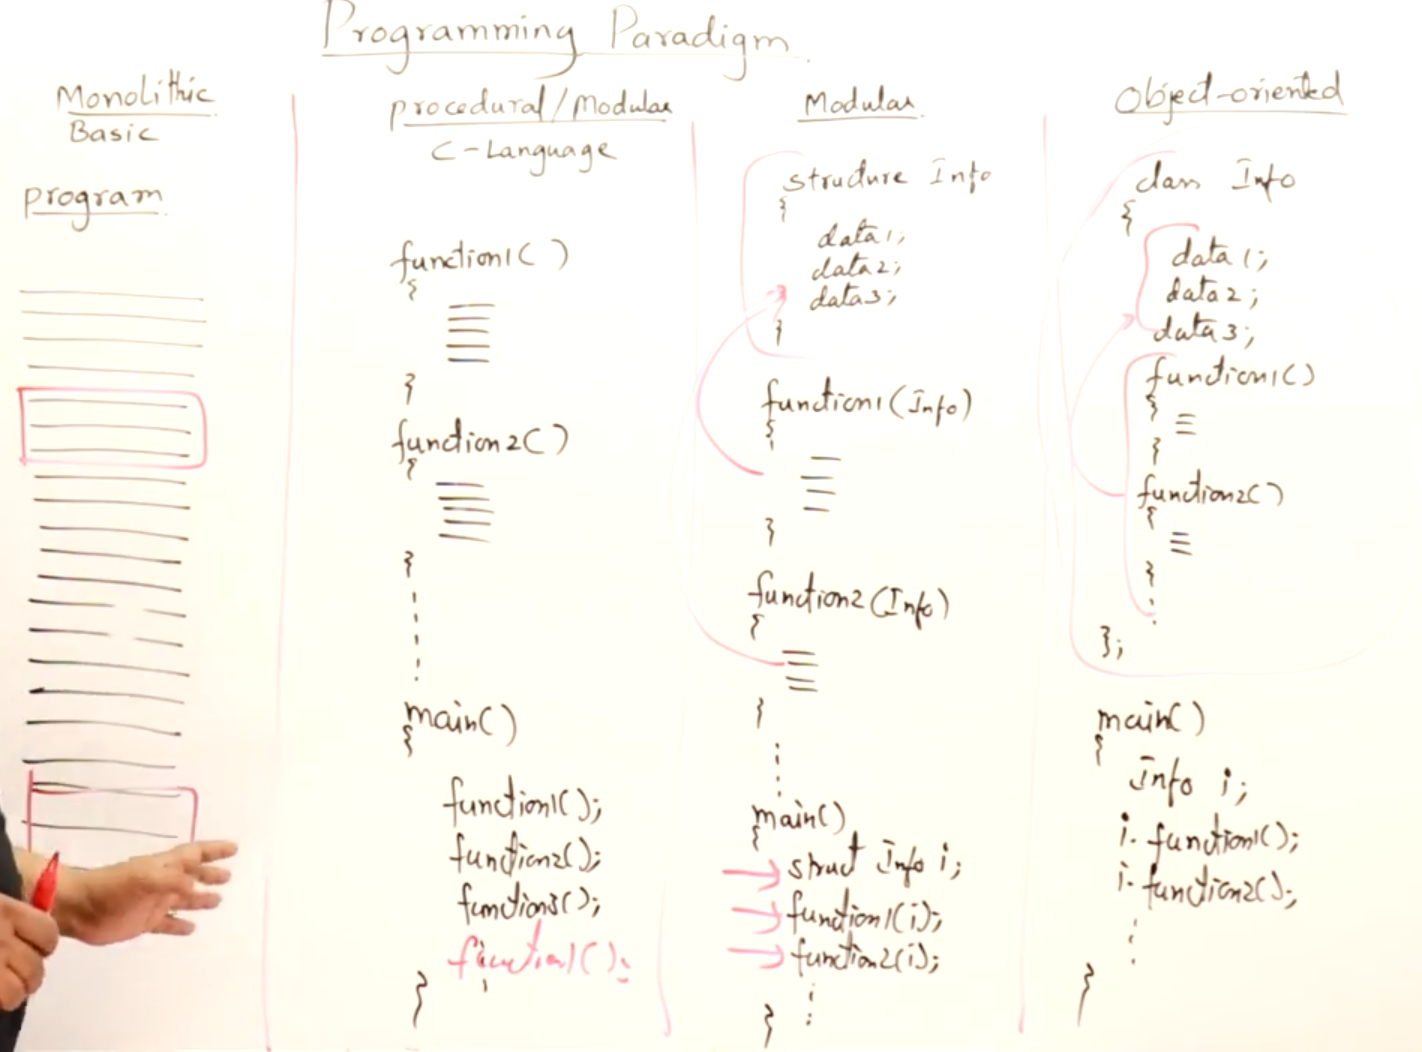 Programming Paradigm
Monolithic
Basic
program
procedural/Modular
C-Language
function1( )
{
}
function2( )
{
}
main()
{
function1();
function2();
function3();
function1();
}
Modular
structure Info
{
data1;
data2;
data3;
}
function1(Info)
{
}
function2(Info)
{
}
main()
{
struct Info i;
function1(i);
function2(i);
}
Object-oriented
class Info
{
data1;
data2;
data3;
function1()
{
}
function2()
{
}
};
main()
{
Info i;
i.function1();
i.function2();
}